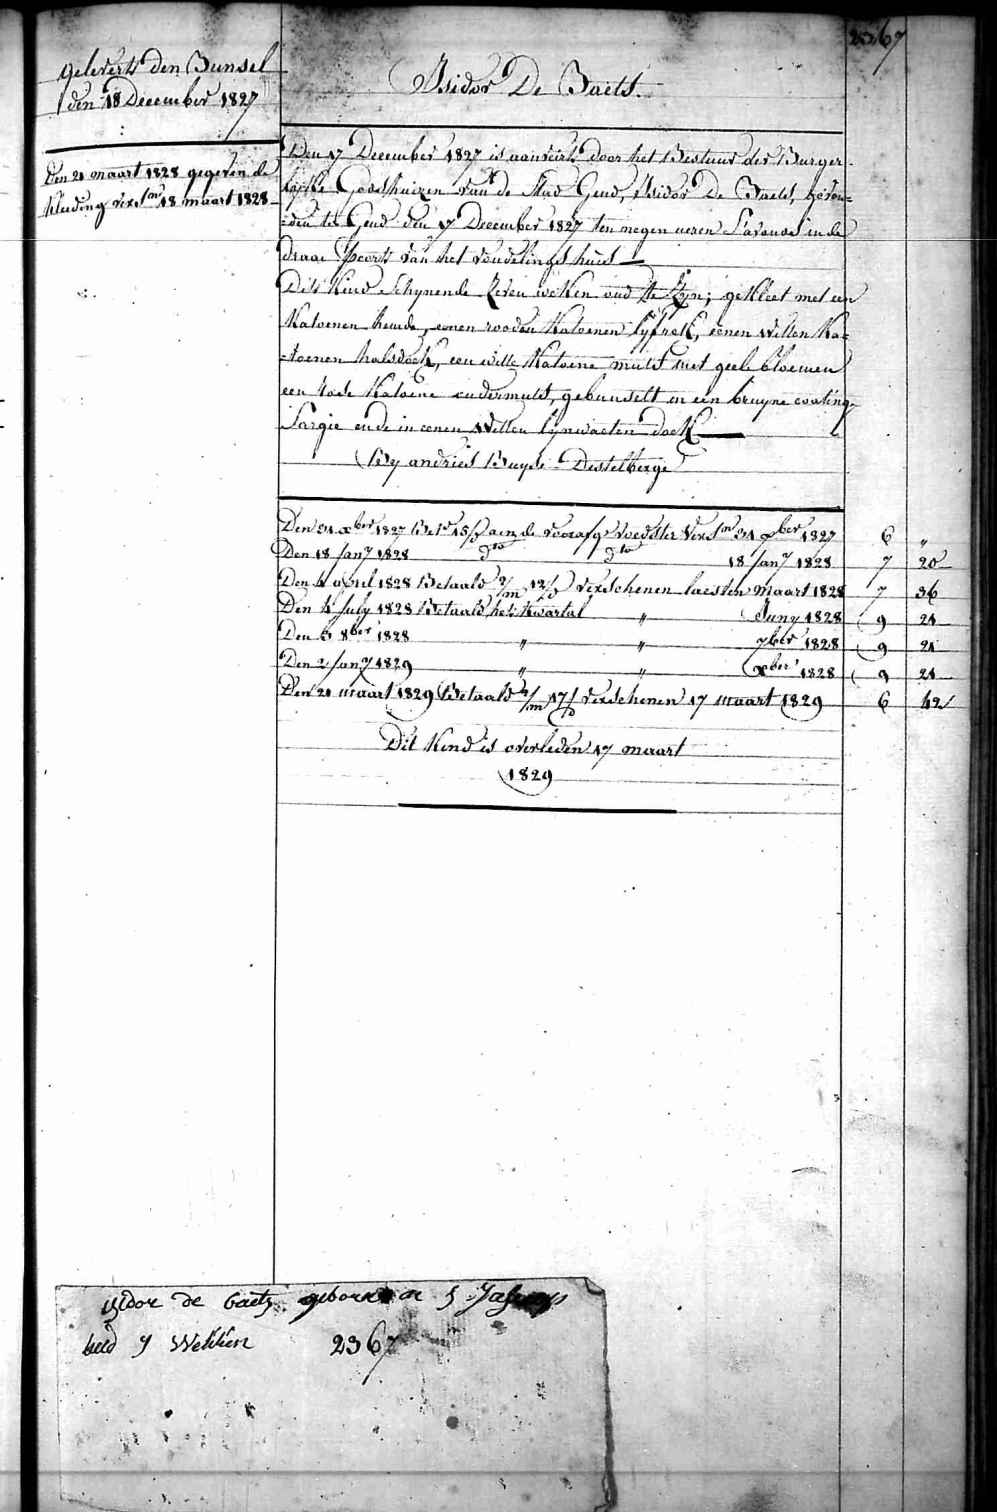 2367
geleverts den Bunsel
den 18 December 1827
Den 21 maart 1828 gegeven de
kleeding versn 18 maart 1828
Isidor De Baets.
Den 17 December 1827 is aanveirt door het Bestuur der Burger-
lyke Godshuizen van de Stad Gend, Isidor De Baets, gevon=
=den te Gend den 17 December 1827 ten negen ueren S'avonds in de
draai Poorte van het vondelings huis
Dits Kind Schynende Zeven weken oud te Zyn; gekleet met een
Katoenen hemde, eenen rooden Katoenen lyfrok, eenen Witten Ka=
=toenen halsdoek, een witte Katoene muts met geele bloemen
een roode Katoene ondermuts, gebunselt in een bruyne coating
Sargie ende in eenen Witten lynwaeten doek
By andries Buyse Destelberge
Den 31 xber 1827 Bet 15/d aen de voorasge voedster versn 31 xber 1827 6 "
Den 18 Jany 1828 dto dto 18 Jany 1828 7 20
Den 4 april 1828 Betaald 2/m 12/d verschenen laesten maart 1828 7 36
Den 4 July 1828 Betaald het kwartal " Juny 1828 9 21
Den 3 8ber 1828 " " 7ber 1828 9 21
Den 2 Jany 1829 " " xber 1828 9 21
Den 21 maart 1829 Betaald 2/m 17/d verschenen 17 maart 1829 6 42
Dit Kind is overleden 17 maart
1829
isidor de baets geboren
7 Wekken 2367